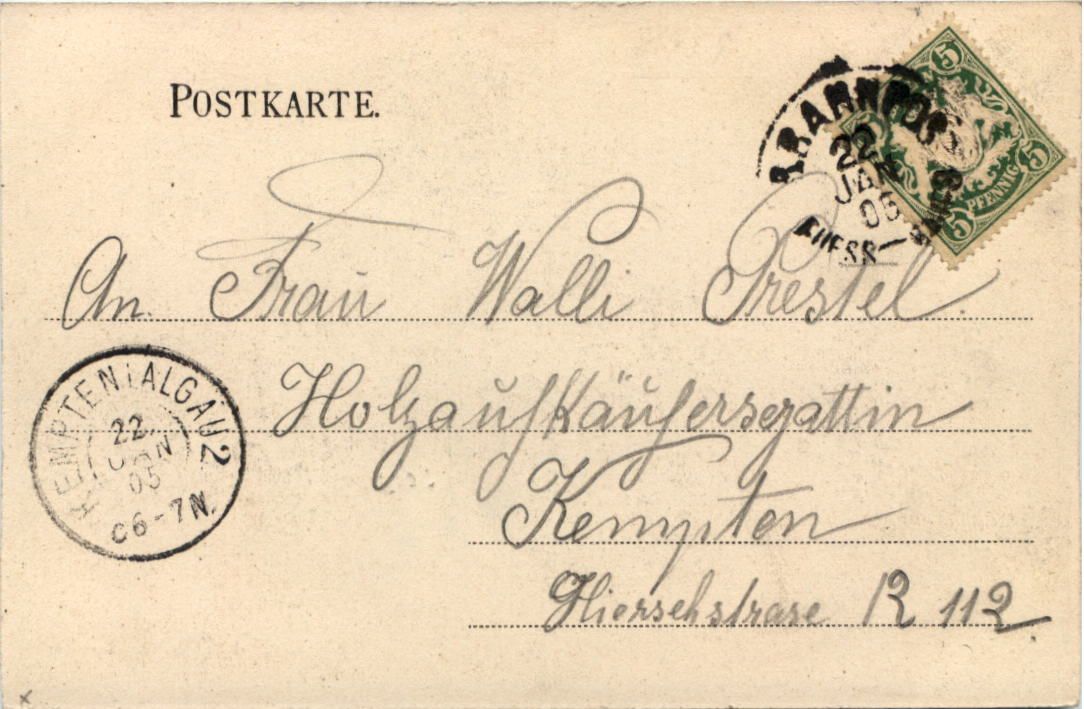 POSTKARTE.
BAHNPOS
22
JAN
05
5
5
5
PFENNIG
An Frau Walli Prestel
Holzaufkäufersgattin
Kempten
Hierschstrase R 112
KEMPTEN i ALGÄU 2
22
JAN
05
6-7 N.